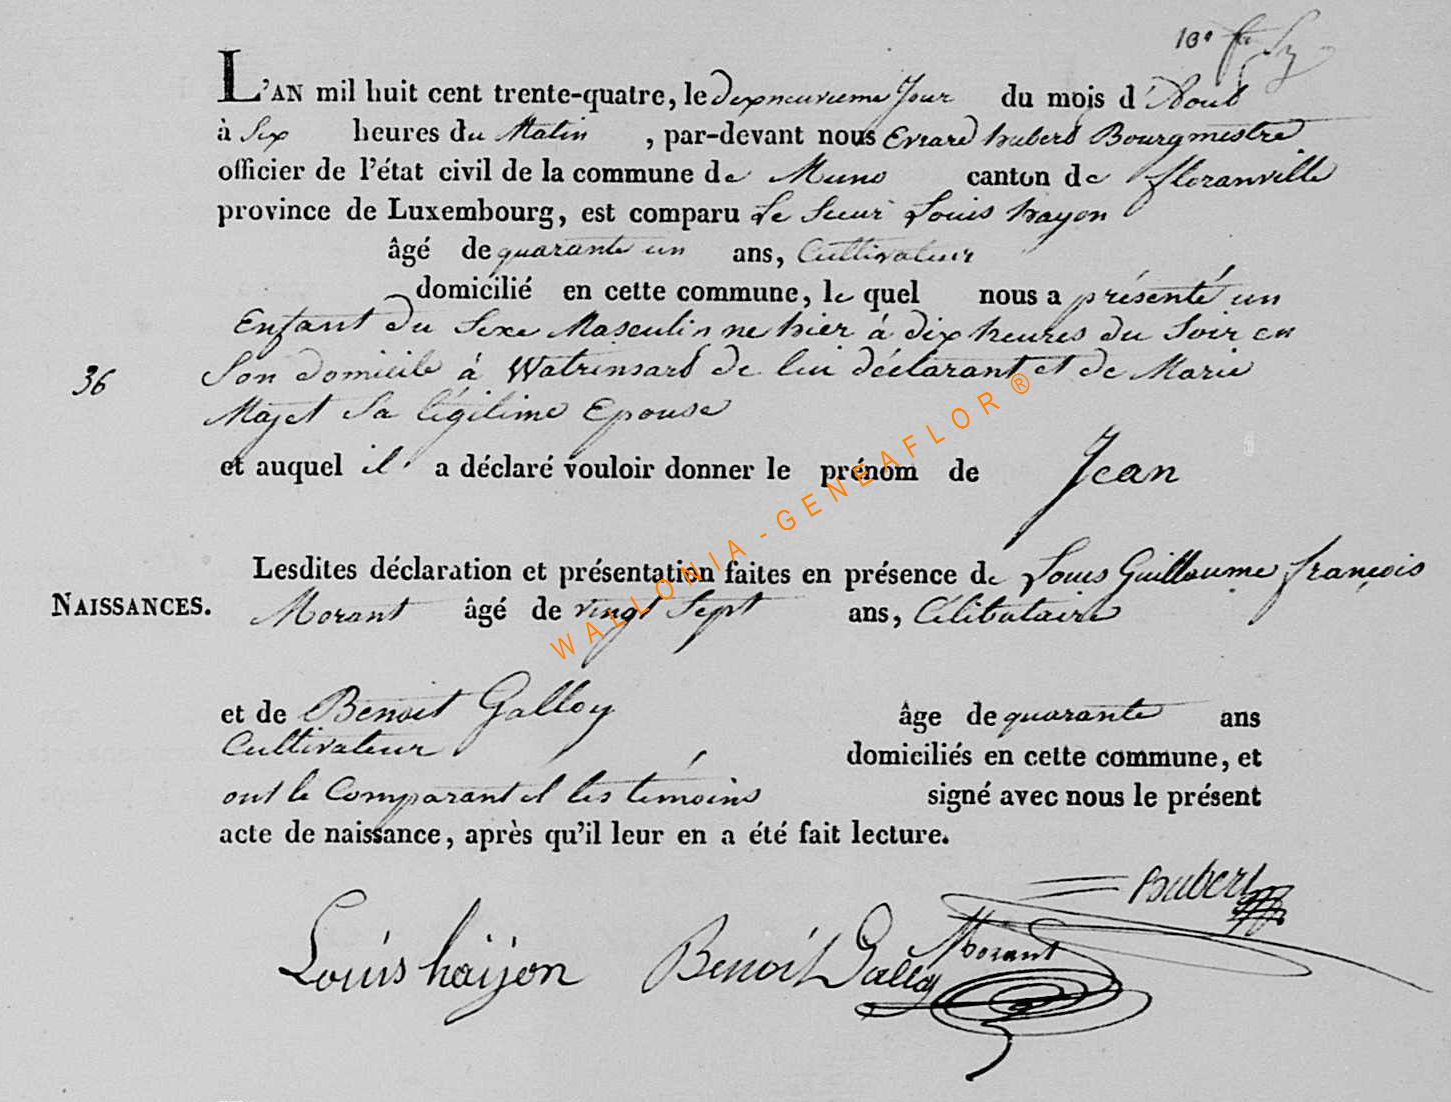 10e
L'AN mil huit cent trente-quatre, le dixneuvieme Jour du mois d'Aout
à Six heures du Matin , par-devant nous Evrard hubert Bourgmestre
officier de l'état civil de la commune de Muno canton de floranville
province de Luxembourg, est comparu Le Sieur Louis hayon
âgé de quarante un ans, Cultivateur
domicilié en cette commune, le quel nous a présenté un
Enfant du Sexe Masculin ne hier à dix heures du Soir en
36 Son domicile à Watrinsard de lui déclarant et de Marie
Majet Sa légitime Epouse
et auquel il a déclaré vouloir donner le prénom de Jean
Lesdites déclaration et présentation faites en présence de Louis Guillaume françois
NAISSANCES. Morant âgé de vingt Sept ans, Célibataire
et de Benoit Galloy âge de quarante ans
Cultivateur domiciliés en cette commune, et
ont le Comparant et les témoins signé avec nous le présent
acte de naissance, après qu'il leur en a été fait lecture.
Hubert
Louis haijon Benoit Galloy Morant
WALLONIA-GENEAFLOR®